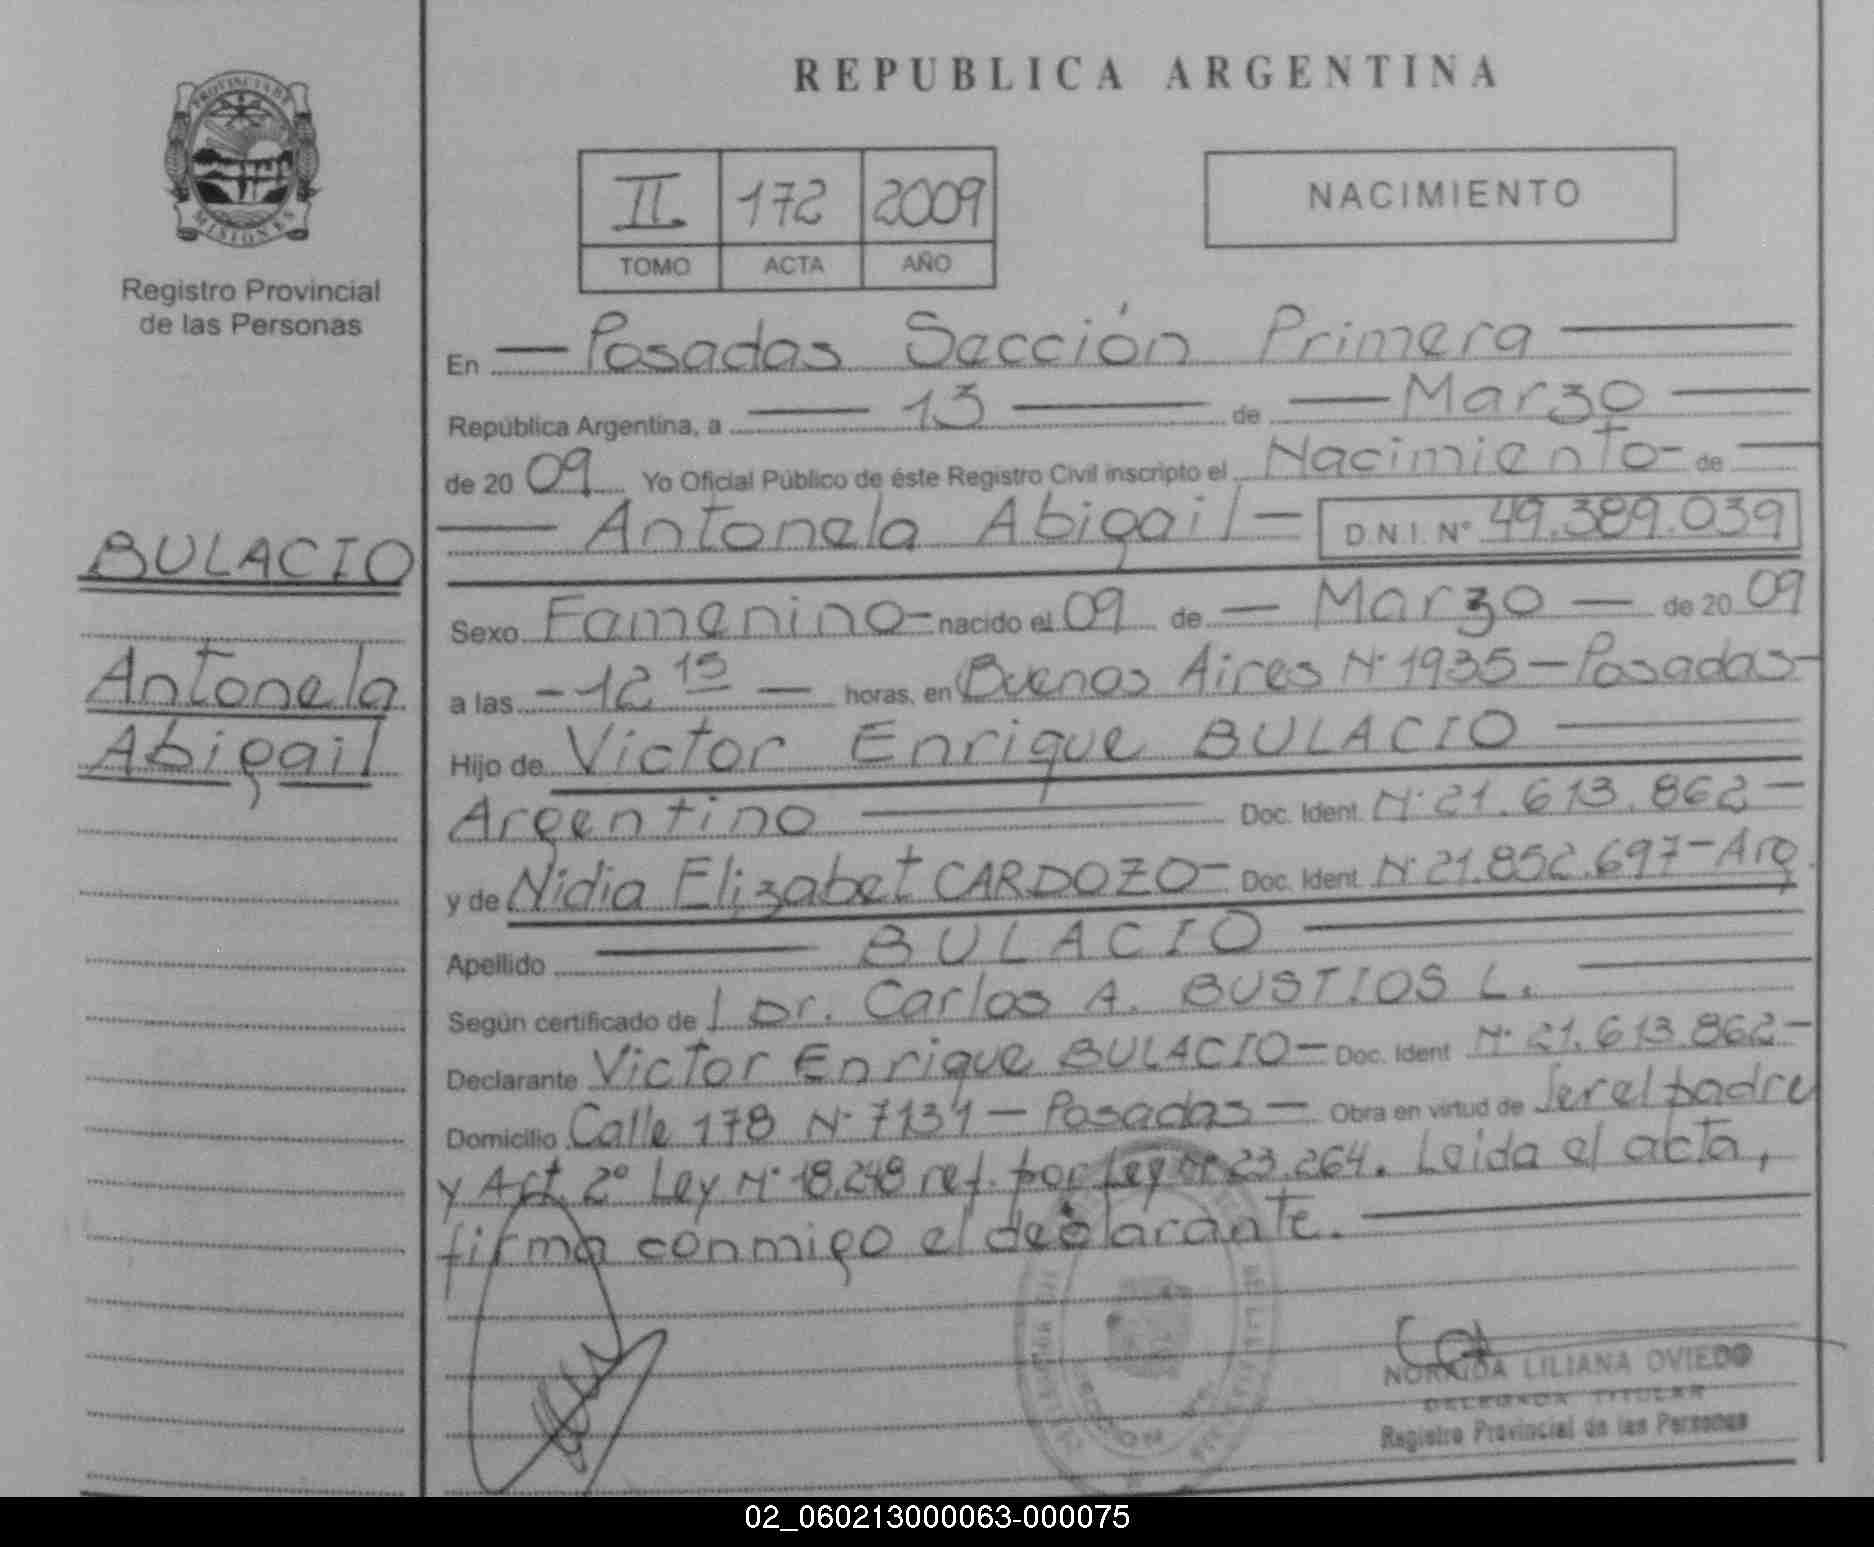 PROVINCIA DE
MISIONES
Registro Provincial
de las Personas
BULACIO
Antonela
Abigail
REPUBLICA ARGENTINA
II 172 2009
TOMO ACTA AÑO
NACIMIENTO
En — Posadas Sección Primera —
República Argentina, a — 13 — de — Marzo —
de 20 09 Yo Oficial Público de éste Registro Civil inscripto el Nacimiento - de —
— Antonela Abigail — D.N.I. Nº 49.389.039
Sexo Femenino - nacido el 09 de — Marzo — de 20 09
a las - 12 15 — horas, en Buenos Aires Nº 1935 - Posadas -
Hijo de Victor Enrique BULACIO —
Argentino — Doc. Ident. Nº 21.613.862 -
y de Nidia Elizabet CARDOZO - Doc. Ident Nº 21.852.697 - Arg.
Apellido — BULACIO —
Según certificado de / Dr. Carlos A. BUSTIOS L. —
Declarante Victor Enrique BULACIO - Doc. Ident Nº 21.613.862 -
Domicilio Calle 178 Nº 7131 - Posadas - Obra en virtud de Ser el padre
y Art. 2º Ley Nº 18.248 ref. por Ley nº 23.264. Leida el acta,
firma conmigo el declarante. —
NORMIDA LILIANA OVIEDO
DELEGADA TITULAR
Registro Provincial de las Personas
02_060213000063-000075